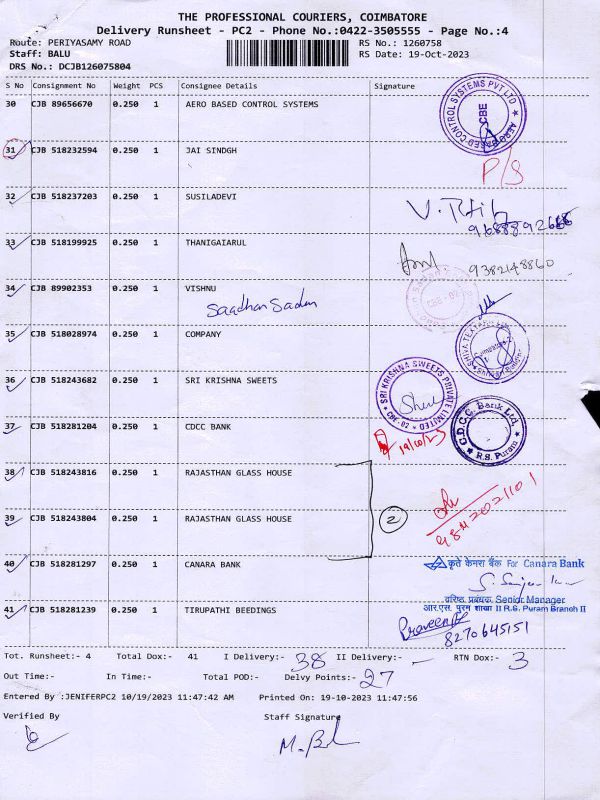 THE PROFESSIONAL COURIERS, COIMBATORE
Delivery Runsheet - PC2 - Phone No.:0422-3505555 - Page No.:4
Route: PERIYASAMY ROAD RS No.: 1260758
Staff: BALU RS Date: 19-Oct-2023
DRS No.: DCJB126075804
S No Consignment No Weight PCS Consignee Details Signature
30 CJB 89656670 0.250 1 AERO BASED CONTROL SYSTEMS
AERO BASED CONTROL SYSTEMS PVT LTD
CBE
31 CJB 518232594 0.250 1 JAI SINDGH
P/S
32 CJB 518237203 0.250 1 SUSILADEVI
33 CJB 518199925 0.250 1 THANIGAIARUL
9382148860
34 CJB 89902353 0.250 1 VISHNU
Saadhan Sadan
35 CJB 518028974 0.250 1 COMPANY
36 CJB 518243682 0.250 1 SRI KRISHNA SWEETS
SRI KRISHNA SWEETS PRIVATE LIMITED
CBE-02
37 CJB 518281204 0.250 1 CDCC BANK
C.D.C.C. Bank Ltd.
R.S. Puram
19/10/23
38 CJB 518243816 0.250 1 RAJASTHAN GLASS HOUSE
39 CJB 518243804 0.250 1 RAJASTHAN GLASS HOUSE
2
40 CJB 518281297 0.250 1 CANARA BANK
कृते केनरा बैंक For Canara Bank
वरिष्ठ प्रबंधक Senior Manager
आर.एस. पुरम शाखा II R.S. Puram Branch II
41 CJB 518281239 0.250 1 TIRUPATHI BEEDINGS
Praveen
8270645151
Tot. Runsheet:- 4 Total Dox:- 41 I Delivery:- 38 II Delivery:- - RTN Dox:- 3
Out Time:- In Time:- Total POD:- Delvy Points:- 27
Entered By :JENIFERPC2 10/19/2023 11:47:42 AM Printed On: 19-10-2023 11:47:56
Verified By Staff Signature